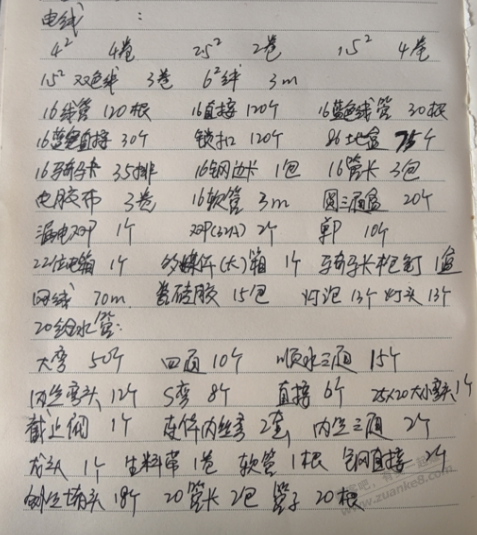 电线 :
4² 4卷 2.5² 2卷 1.5² 4卷
1.5² 双色线 3卷 6²线 3m
16线管 120根 16直接 120个 16蓝色线管 30根
16蓝色直接 30个 锁扣 120个 86土盒 75个
16骑马卡 35排 16钢边卡 1包 16管卡 3包
电胶布 3卷 16软管 3m 圆三通盒 20个
漏电双P 1个 双P(32A) 2个 单P 10个
22位电箱 1个 多媒体(大)箱 1个 骑马卡枪钉 1盒
网线 70m 瓷砖胶 15包 灯泡 13个 灯头 13个
20给水管:
大弯 50个 四通 10个 顺水三通 15个
内丝弯头 12个 S弯 8个 直接 6个 25X20大小弯头 1个
截止阀 1个 连体内丝弯 2套 内丝三通 2个
龙头 1个 生料带 1卷 软管 1根 直接 2个
堵头 18个 20管卡 2包 管子 20根
www.zuanke8.com